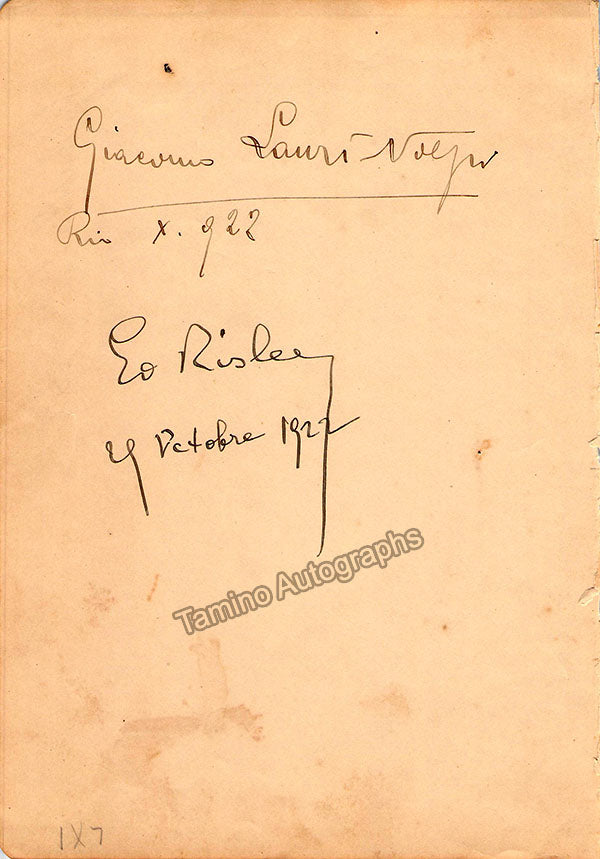 Giacomo Lauri-Volpi
Rio X. 922
Ed Risler
29 Octobre 1922
Tamino Autographs
1X7